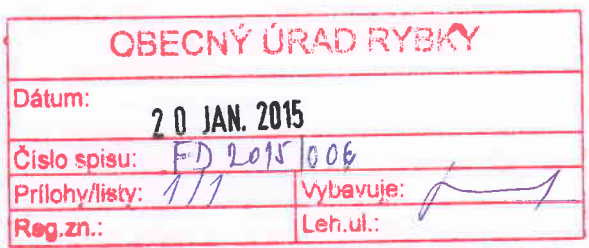 OBECNÝ ÚRAD RYBKY
Dátum:
20 JAN. 2015
Číslo spisu: FD 2015 006
Prílohy/listy: 1/1 Vybavuje:
Reg.zn.: Leh.ul.: